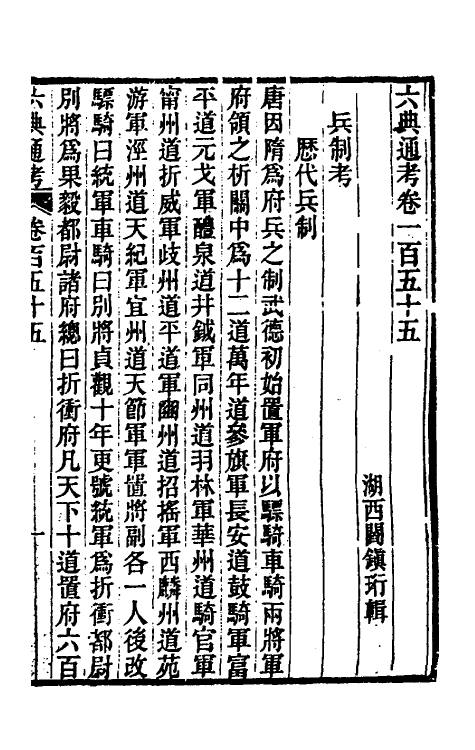 六典通考卷一百五十五
湖西閻鎮珩輯
兵制考
歷代兵制
唐因隋爲府兵之制武德初始置軍府以驃騎車騎兩將軍
府領之析關中爲十二道萬年道參旗軍長安道鼓騎軍富
平道元戈軍醴泉道井鉞軍同州道羽林軍華州道騎官軍
甯州道折威軍歧州道平道軍豳州道招搖軍西麟州道苑
游軍涇州道天紀軍宜州道天節軍軍置將副各一人後改
驃騎曰統軍車騎曰別將貞觀十年更號統軍爲折衝都尉
別將爲果毅都尉諸府總曰折衝府凡天下十道置府六百
六典通考
卷百五十五
一